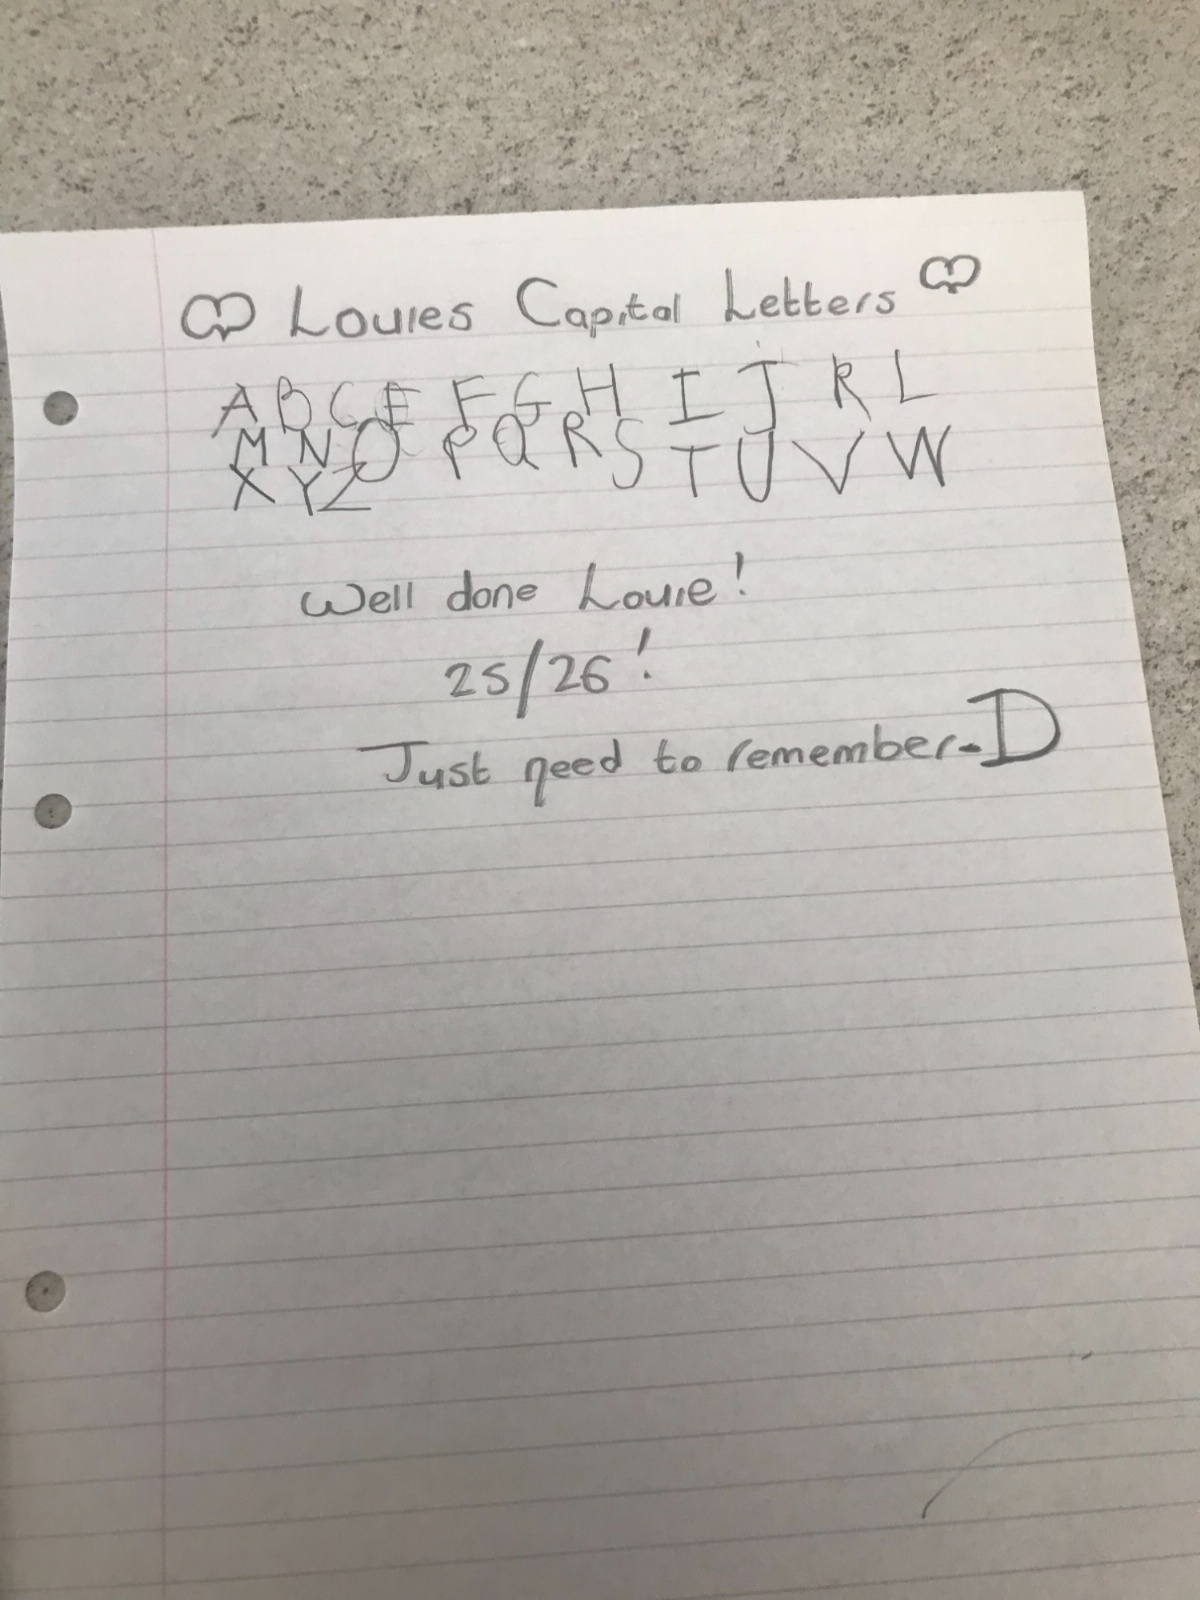 Louies Capital Letters
A B C E F G H I J R L
M N O P Q R S T U V W
X Y Z
Well done Louie!
25/26!
Just need to remember-D